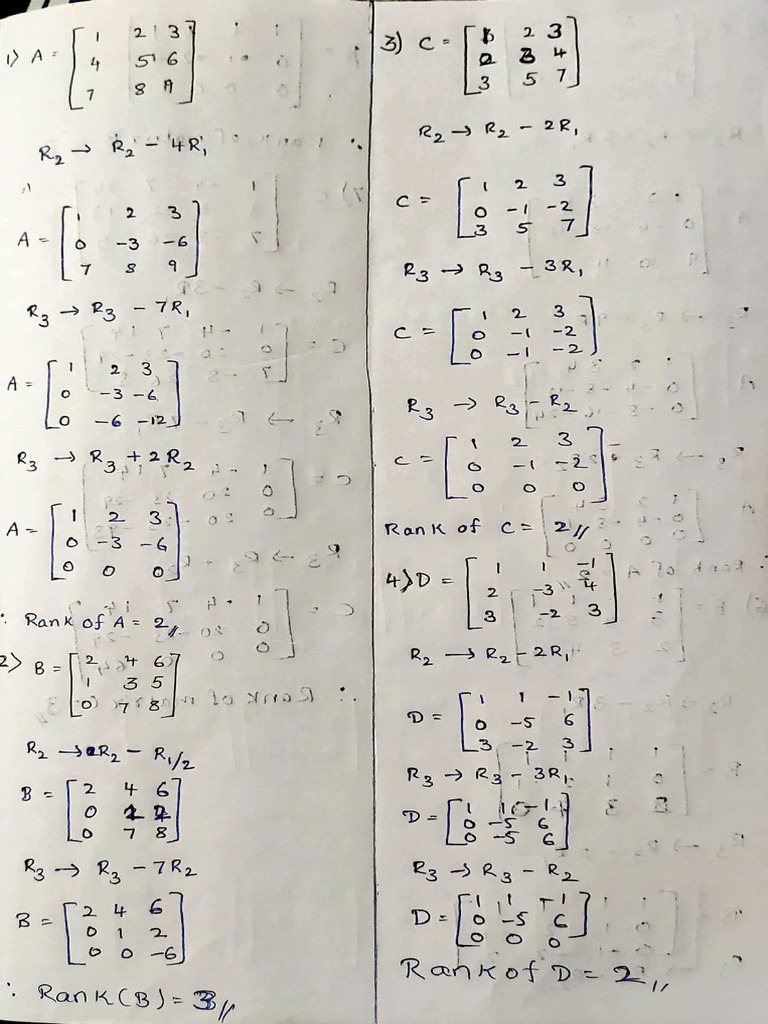 1) A = [1 2 3
4 5 6
7 8 9]
R₂ → R₂ - 4R₁
A = [1 2 3
0 -3 -6
7 8 9]
R₃ → R₃ - 7R₁
A = [1 2 3
0 -3 -6
0 -6 -12]
R₃ → R₃ + 2R₂
A = [1 2 3
0 -3 -6
0 0 0]
∴ Rank of A = 2//
2) B = [2 4 6
1 3 5
0 7 8]
R₂ → R₂ - R₁/2
B = [2 4 6
0 1 2
0 7 8]
R₃ → R₃ - 7R₂
B = [2 4 6
0 1 2
0 0 -6]
∴ Rank(B) = 3//
3) C = [1 2 3
2 3 4
3 5 7]
R₂ → R₂ - 2R₁
C = [1 2 3
0 -1 -2
3 5 7]
R₃ → R₃ - 3R₁
C = [1 2 3
0 -1 -2
0 -1 -2]
R₃ → R₃ - R₂
C = [1 2 3
0 -1 -2
0 0 0]
Rank of C = 2//
4) D = [1 1 -1
2 -3 4
3 -2 3]
R₂ → R₂ - 2R₁
D = [1 1 -1
0 -5 6
3 -2 3]
R₃ → R₃ - 3R₁
D = [1 1 -1
0 -5 6
0 -5 6]
R₃ → R₃ - R₂
D = [1 1 -1
0 -5 6
0 0 0]
Rank of D = 2//